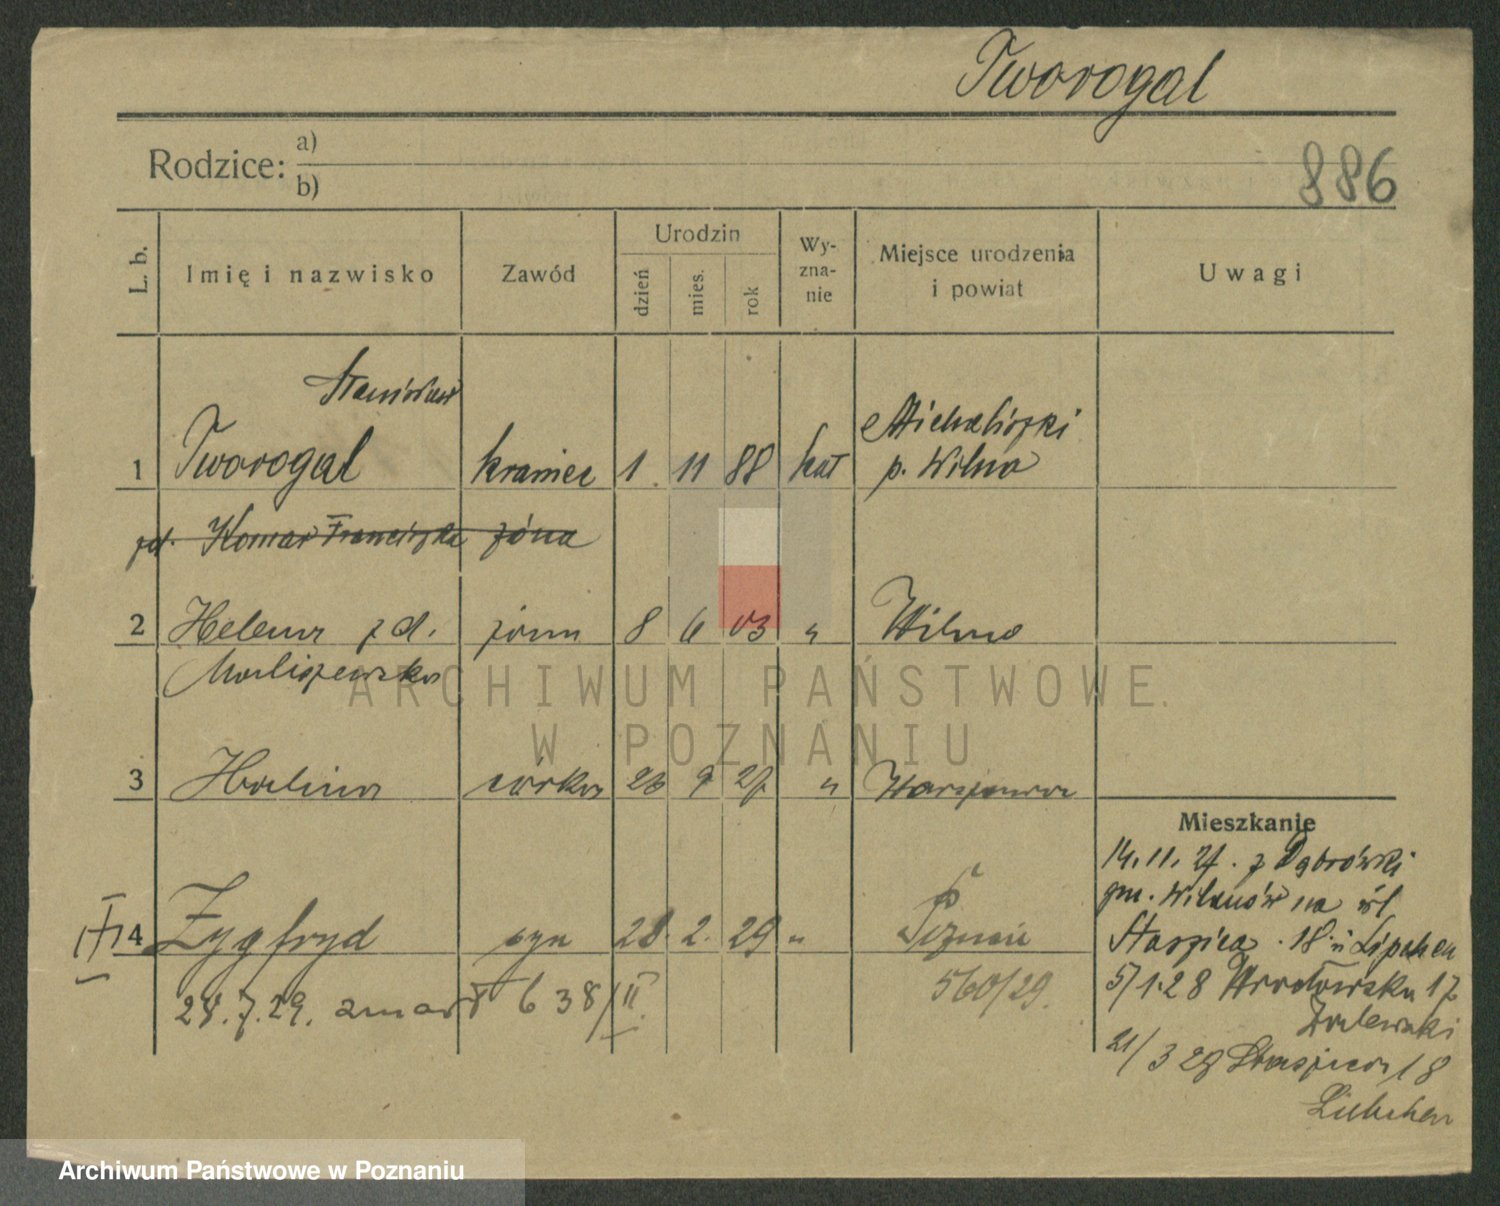 Tworogal
Rodzice: a)
b)
886
L. b.
Imię i nazwisko
Zawód
Urodzin
dzień
mies.
rok
Wy-
zna-
nie
Miejsce urodzenia
i powiat
Uwagi
Stanisław
1 Tworogal kramiec 1. 11 88 kat Michaliszki
p. Wilno
zd. Komar Franciszka żona
2 Helena z d. żona 8 6 03 " Wilno
Maliszewska
3 Halina córka 26 9 27 " Warszawa
4 Zygfryd syn 28. 2. 29 " Poznań
28.7.29. zmarł 638/II. 560/29.
Mieszkanie
14.11.27. z Dąbrówki
gm. Wilanów na ul
Staszica 18 u
5/1.28 Wrocławska 17
Zalewski
21/3 29 Staszica 18
ARCHIWUM PAŃSTWOWE
W POZNANIU
Archiwum Państwowe w Poznaniu